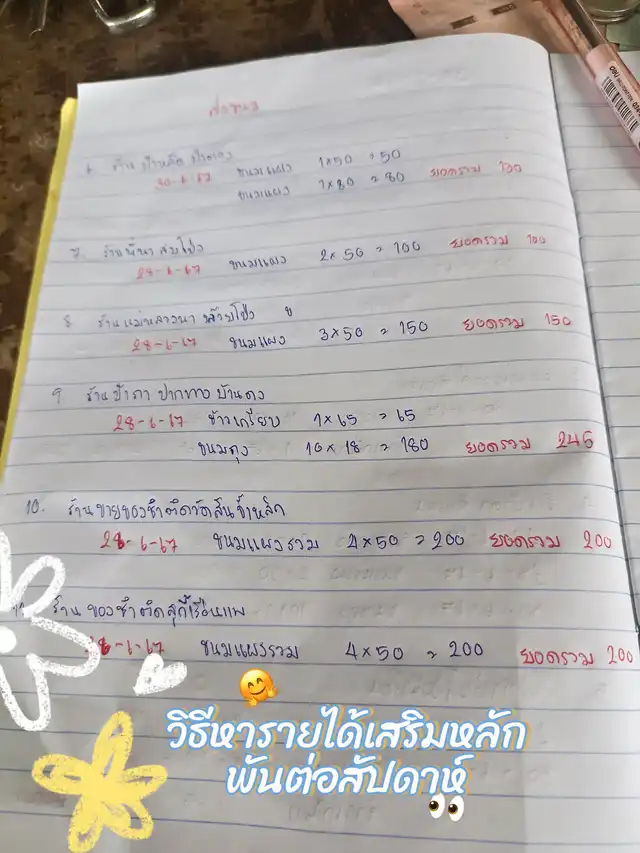 6. ร้าน ป้าหลิด ป่าตอง
30-6-67 ขนมแผง 1×50 = 50
ขนมแผง 1×80 = 80 ยอดรวม 130
7. ร้านพี่นา สบโป่ง
28-6-67 ขนมแผง 2×50 = 100 ยอดรวม 100
8. ร้านแม่หลวงนา ห้วยโป่ง
28-6-67 ขนมแผง 3×50 = 150 ยอดรวม 150
9. ร้านป้าภา ปากทาง บ้านดง
28-6-67 ข้าวเกรียบ 1×65 = 65
ขนมถุง 10×18 = 180 ยอดรวม 245
10. ร้านขายของชำติดวัดสันขี้เหล็ก
28-6-67 ขนมแผงรวม 4×50 = 200 ยอดรวม 200
11. ร้าน ของชำติดสุกี้เรือนแพ
28-6-67 ขนมแผงรวม 4×50 = 200 ยอดรวม 200
วิธีหารายได้เสริมหลัก
พันต่อสัปดาห์